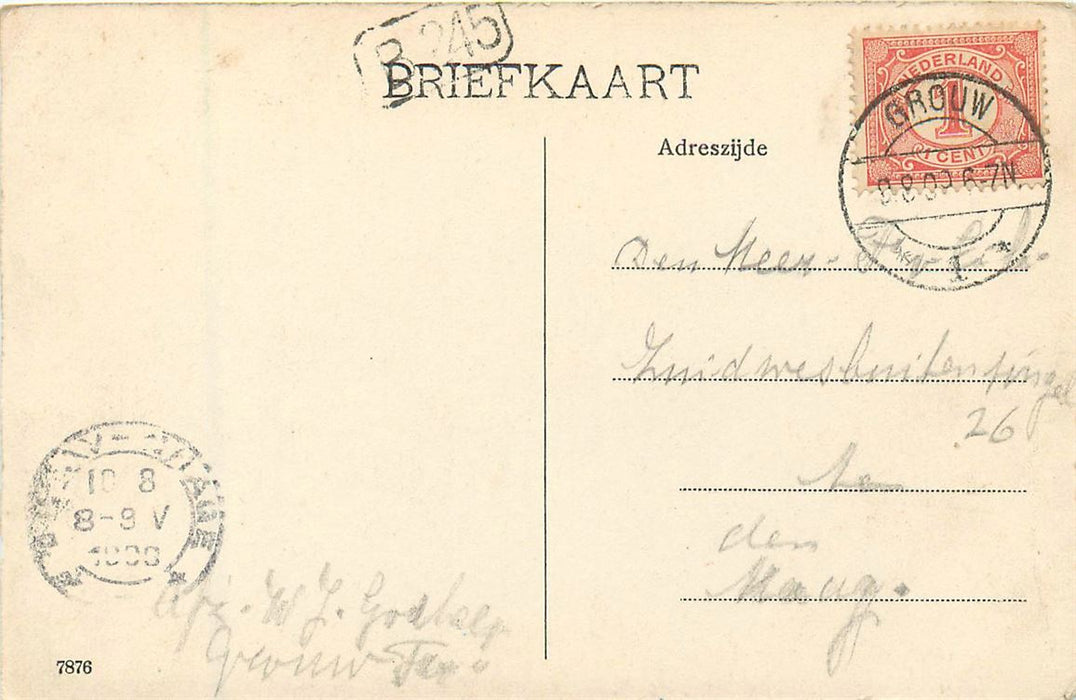 B 245
BRIEFKAART
NEDERLAND
1
1 CENT
GROUW
8.8.09 6-7N
1
Adreszijde
Den Heer
Zuidwesbuitensingel
26
den
Haag.
10 8
8-9 V
Afz. W J.
Grouw
7876